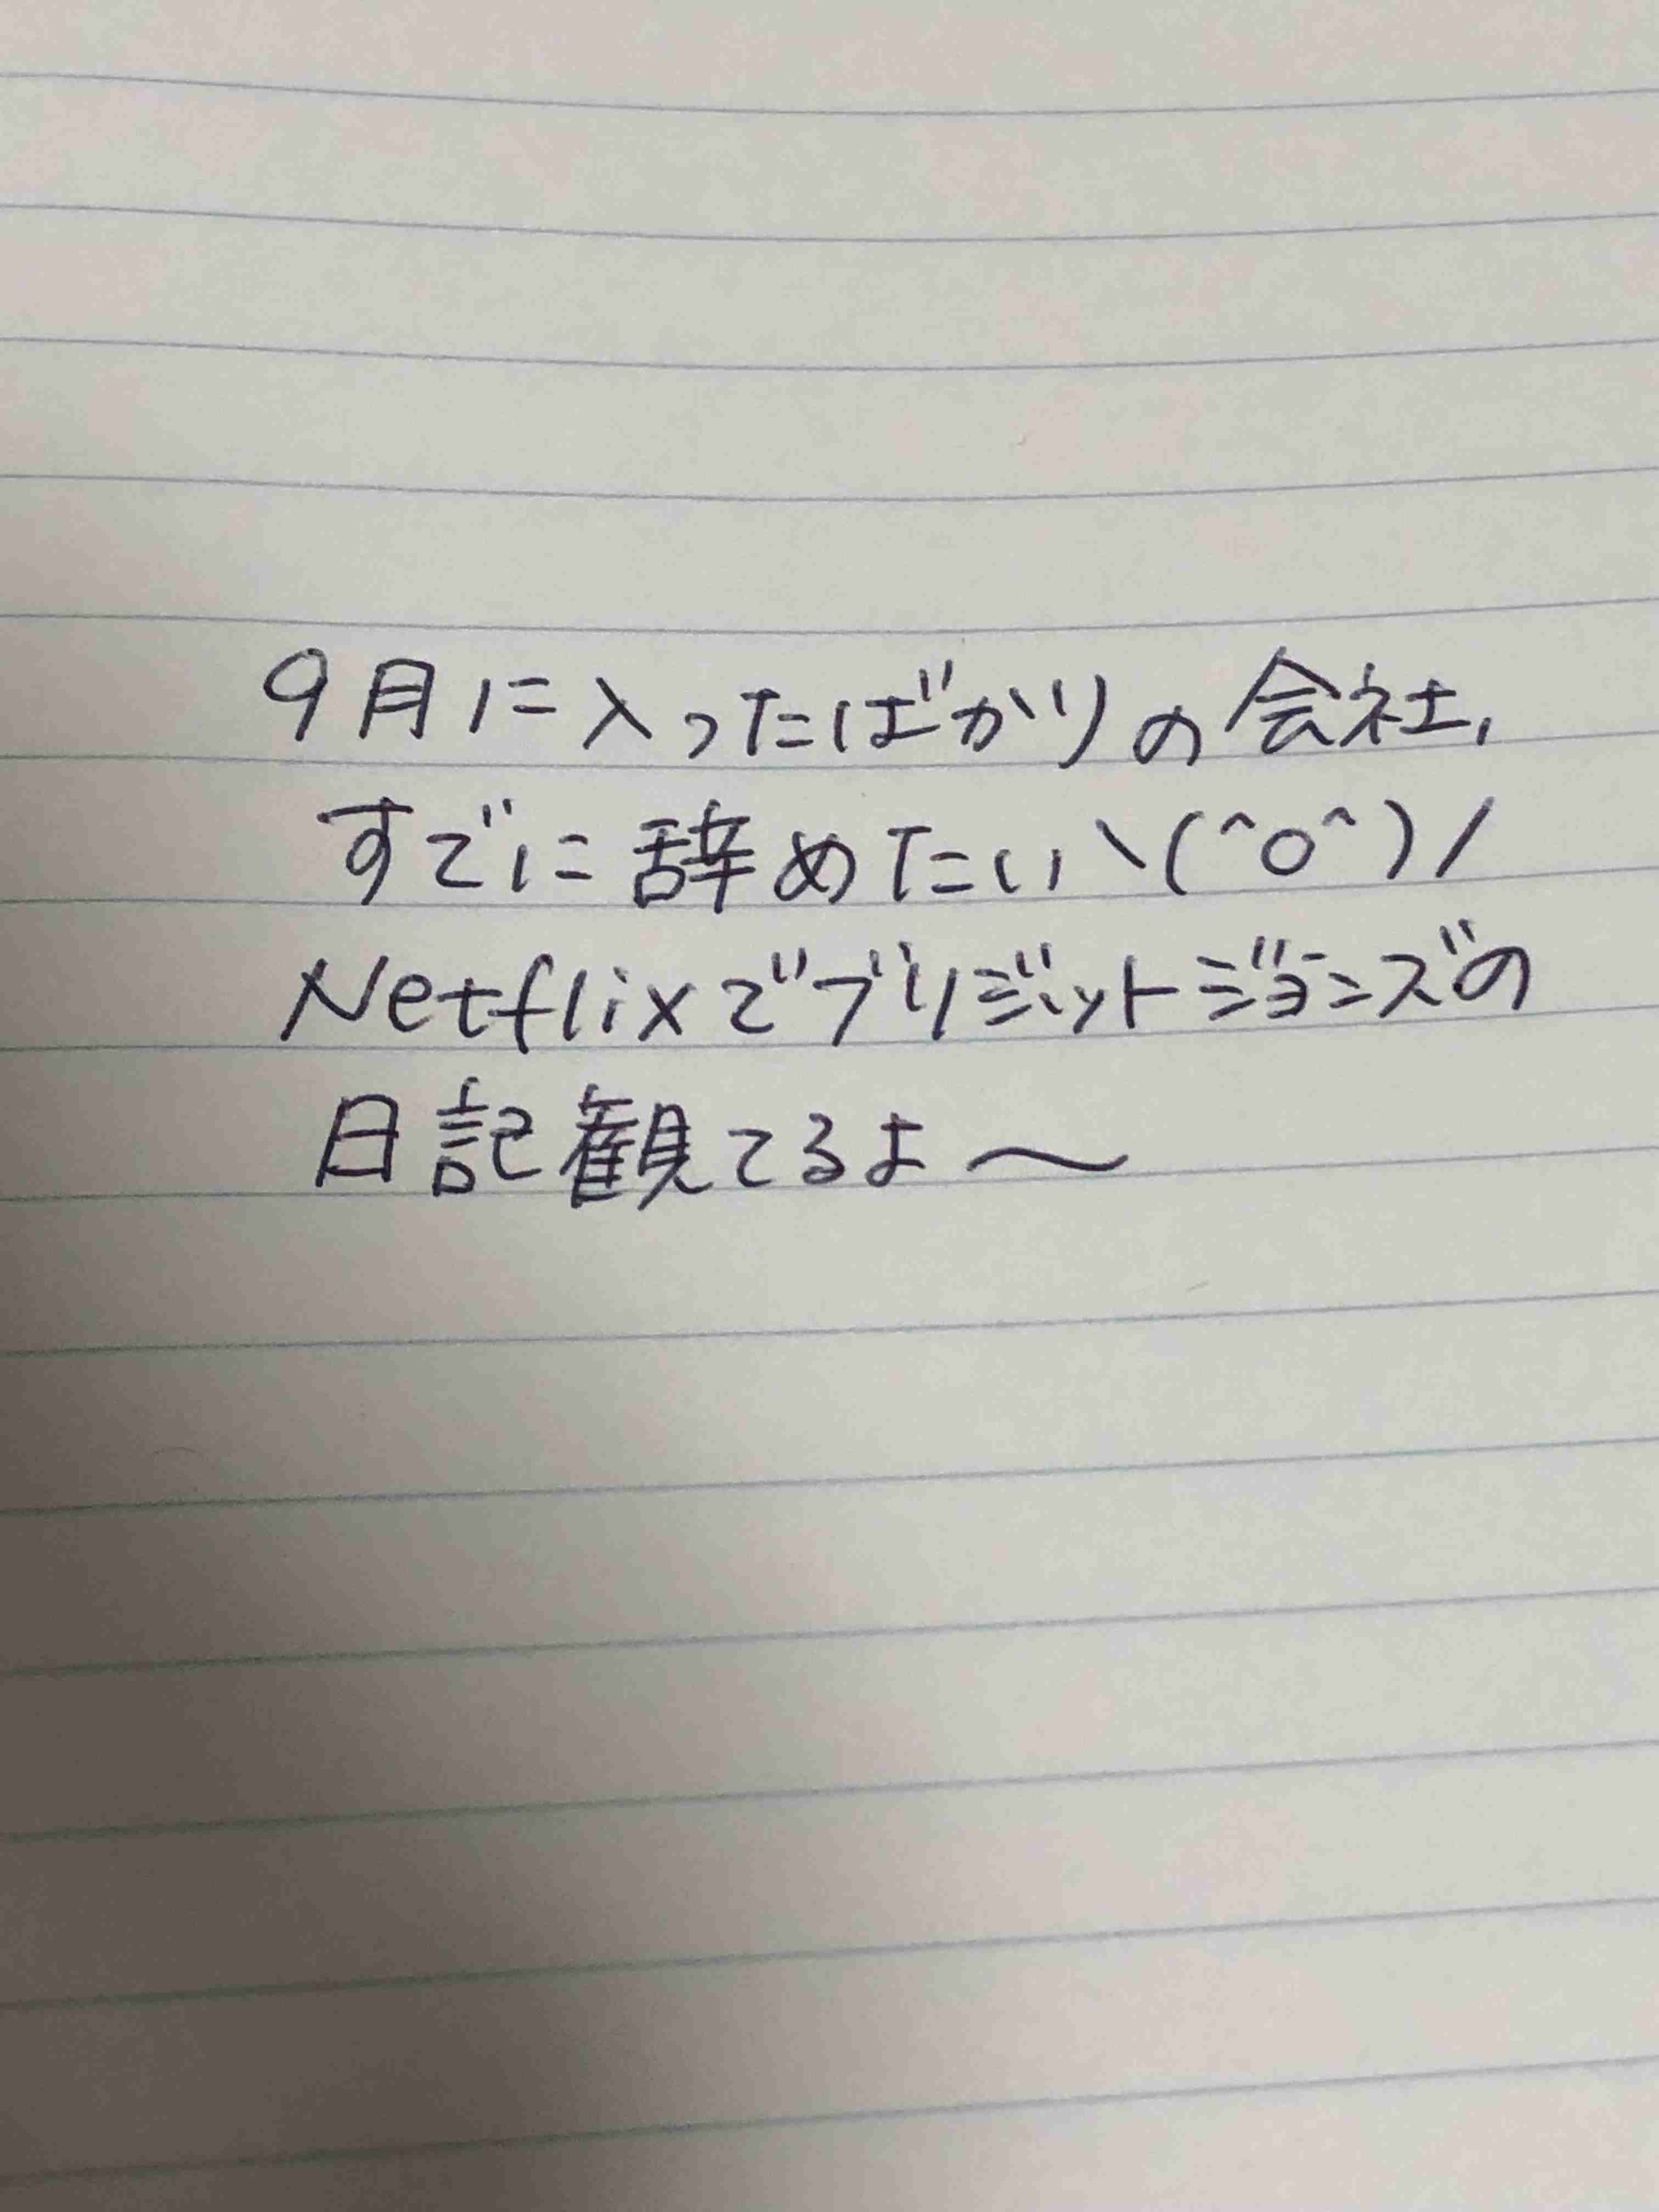 9月に入ったばかりの会社、
すでに辞めたい＼(^o^)/
Netflixでブリジットジョーンズの
日記観てるよ〜